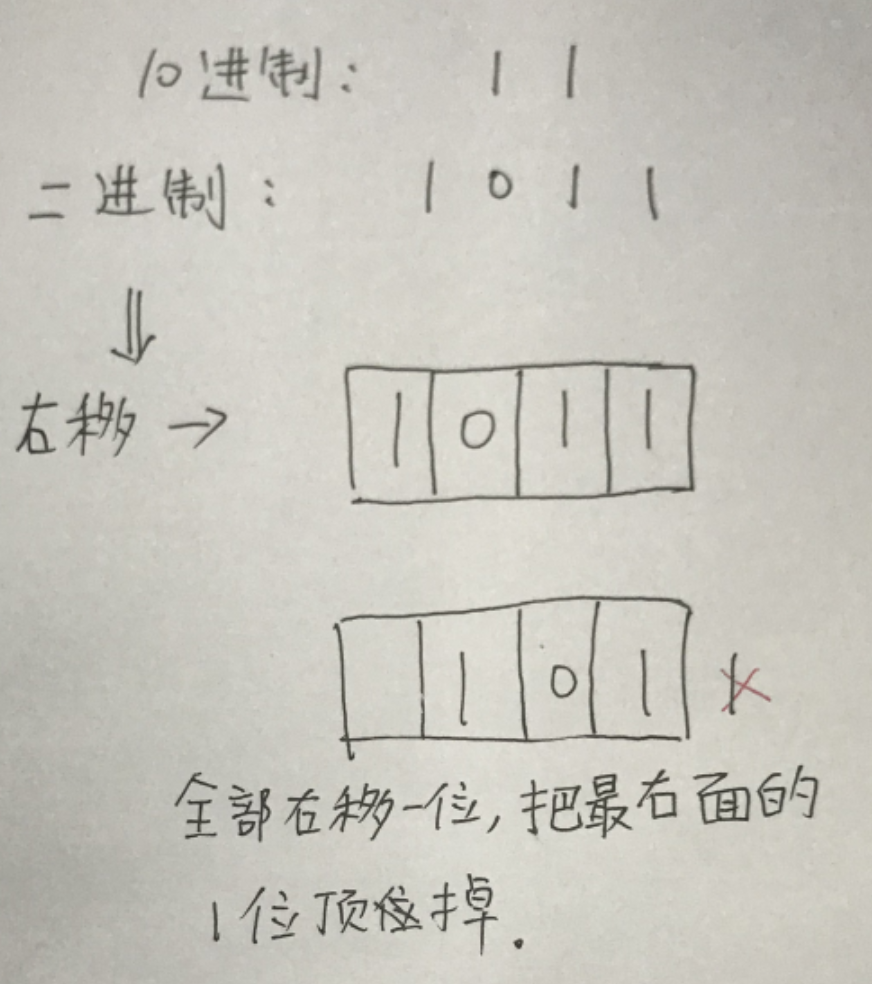 10进制: 11
二进制: 1011
右移→ 1011
101 1
全部右移一位,把最右面的
1位顶掉.